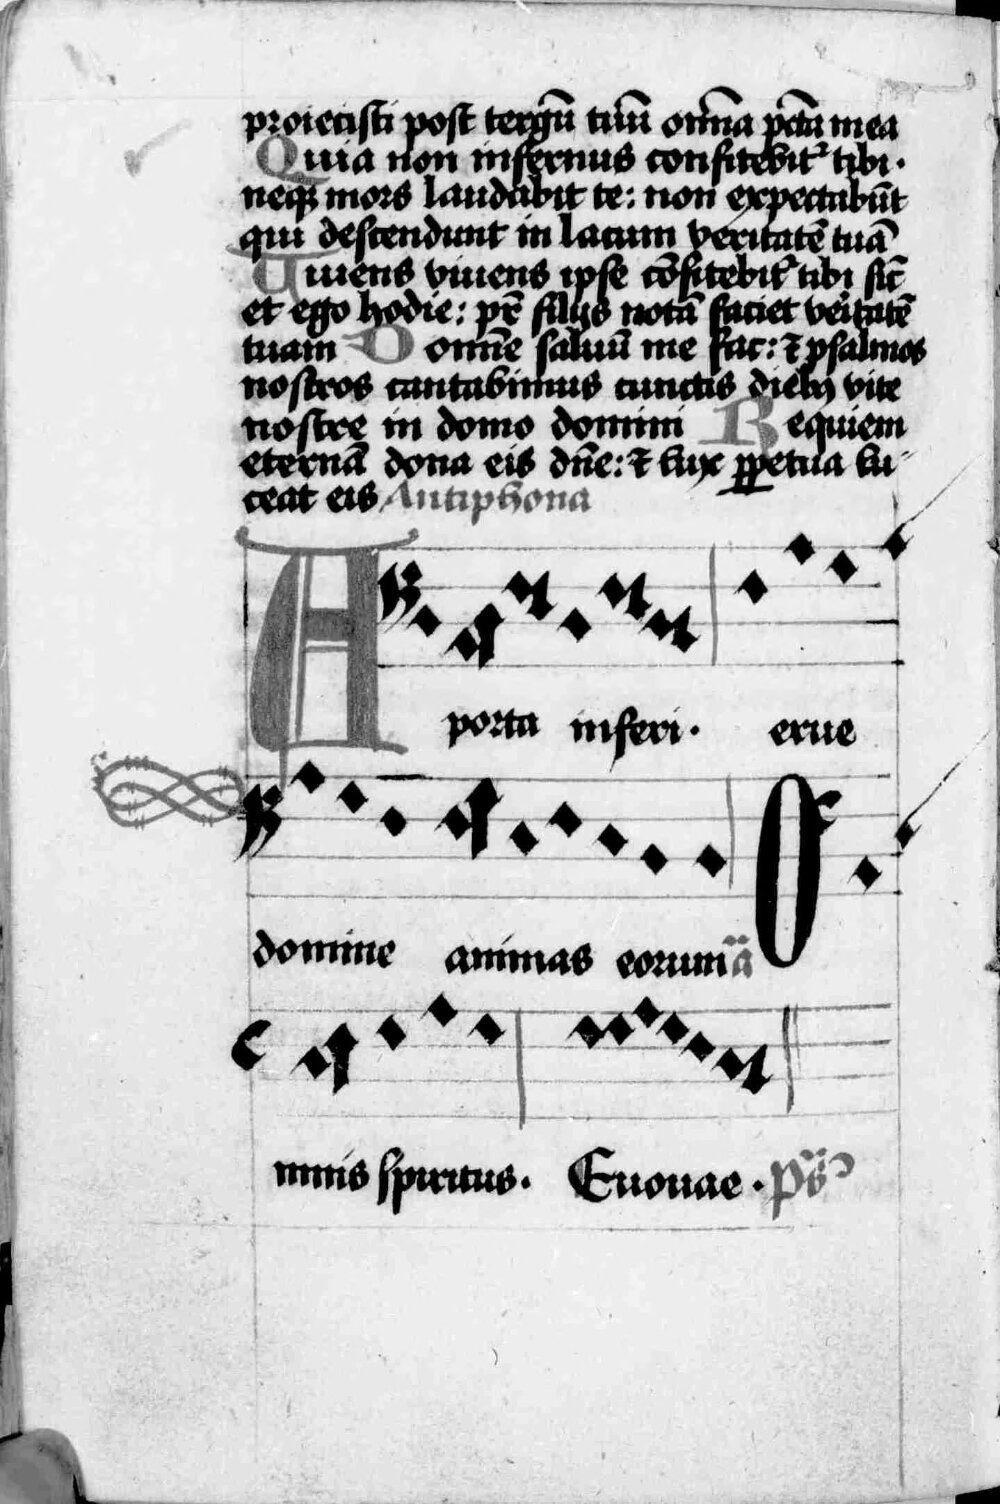 proiecisti post tergū tuū om̄ia pctā mea
Quia non infernus confitebit᷑ tibi.
neqꝫ mors laudabit te: non expectabūt
qui descendunt in lacum veritatē tuā
Viuens viuens ipse cōfitebit᷑ tibi sic̄
et ego hodie: pr̄ filijs notā faciet veritatē
tuam Domīne saluū me fac: ⁊ psalmos
nostros cantabimus cunctis diebꝫ vite
nostre in domo domini Requiem
eternā dona eis dn̄e: ⁊ lux ꝑpetua lu-
ceat eis Antiphona
A porta inferi. erue
domine animas eorum ā O
mnis spiritus. Euouae. ps̄